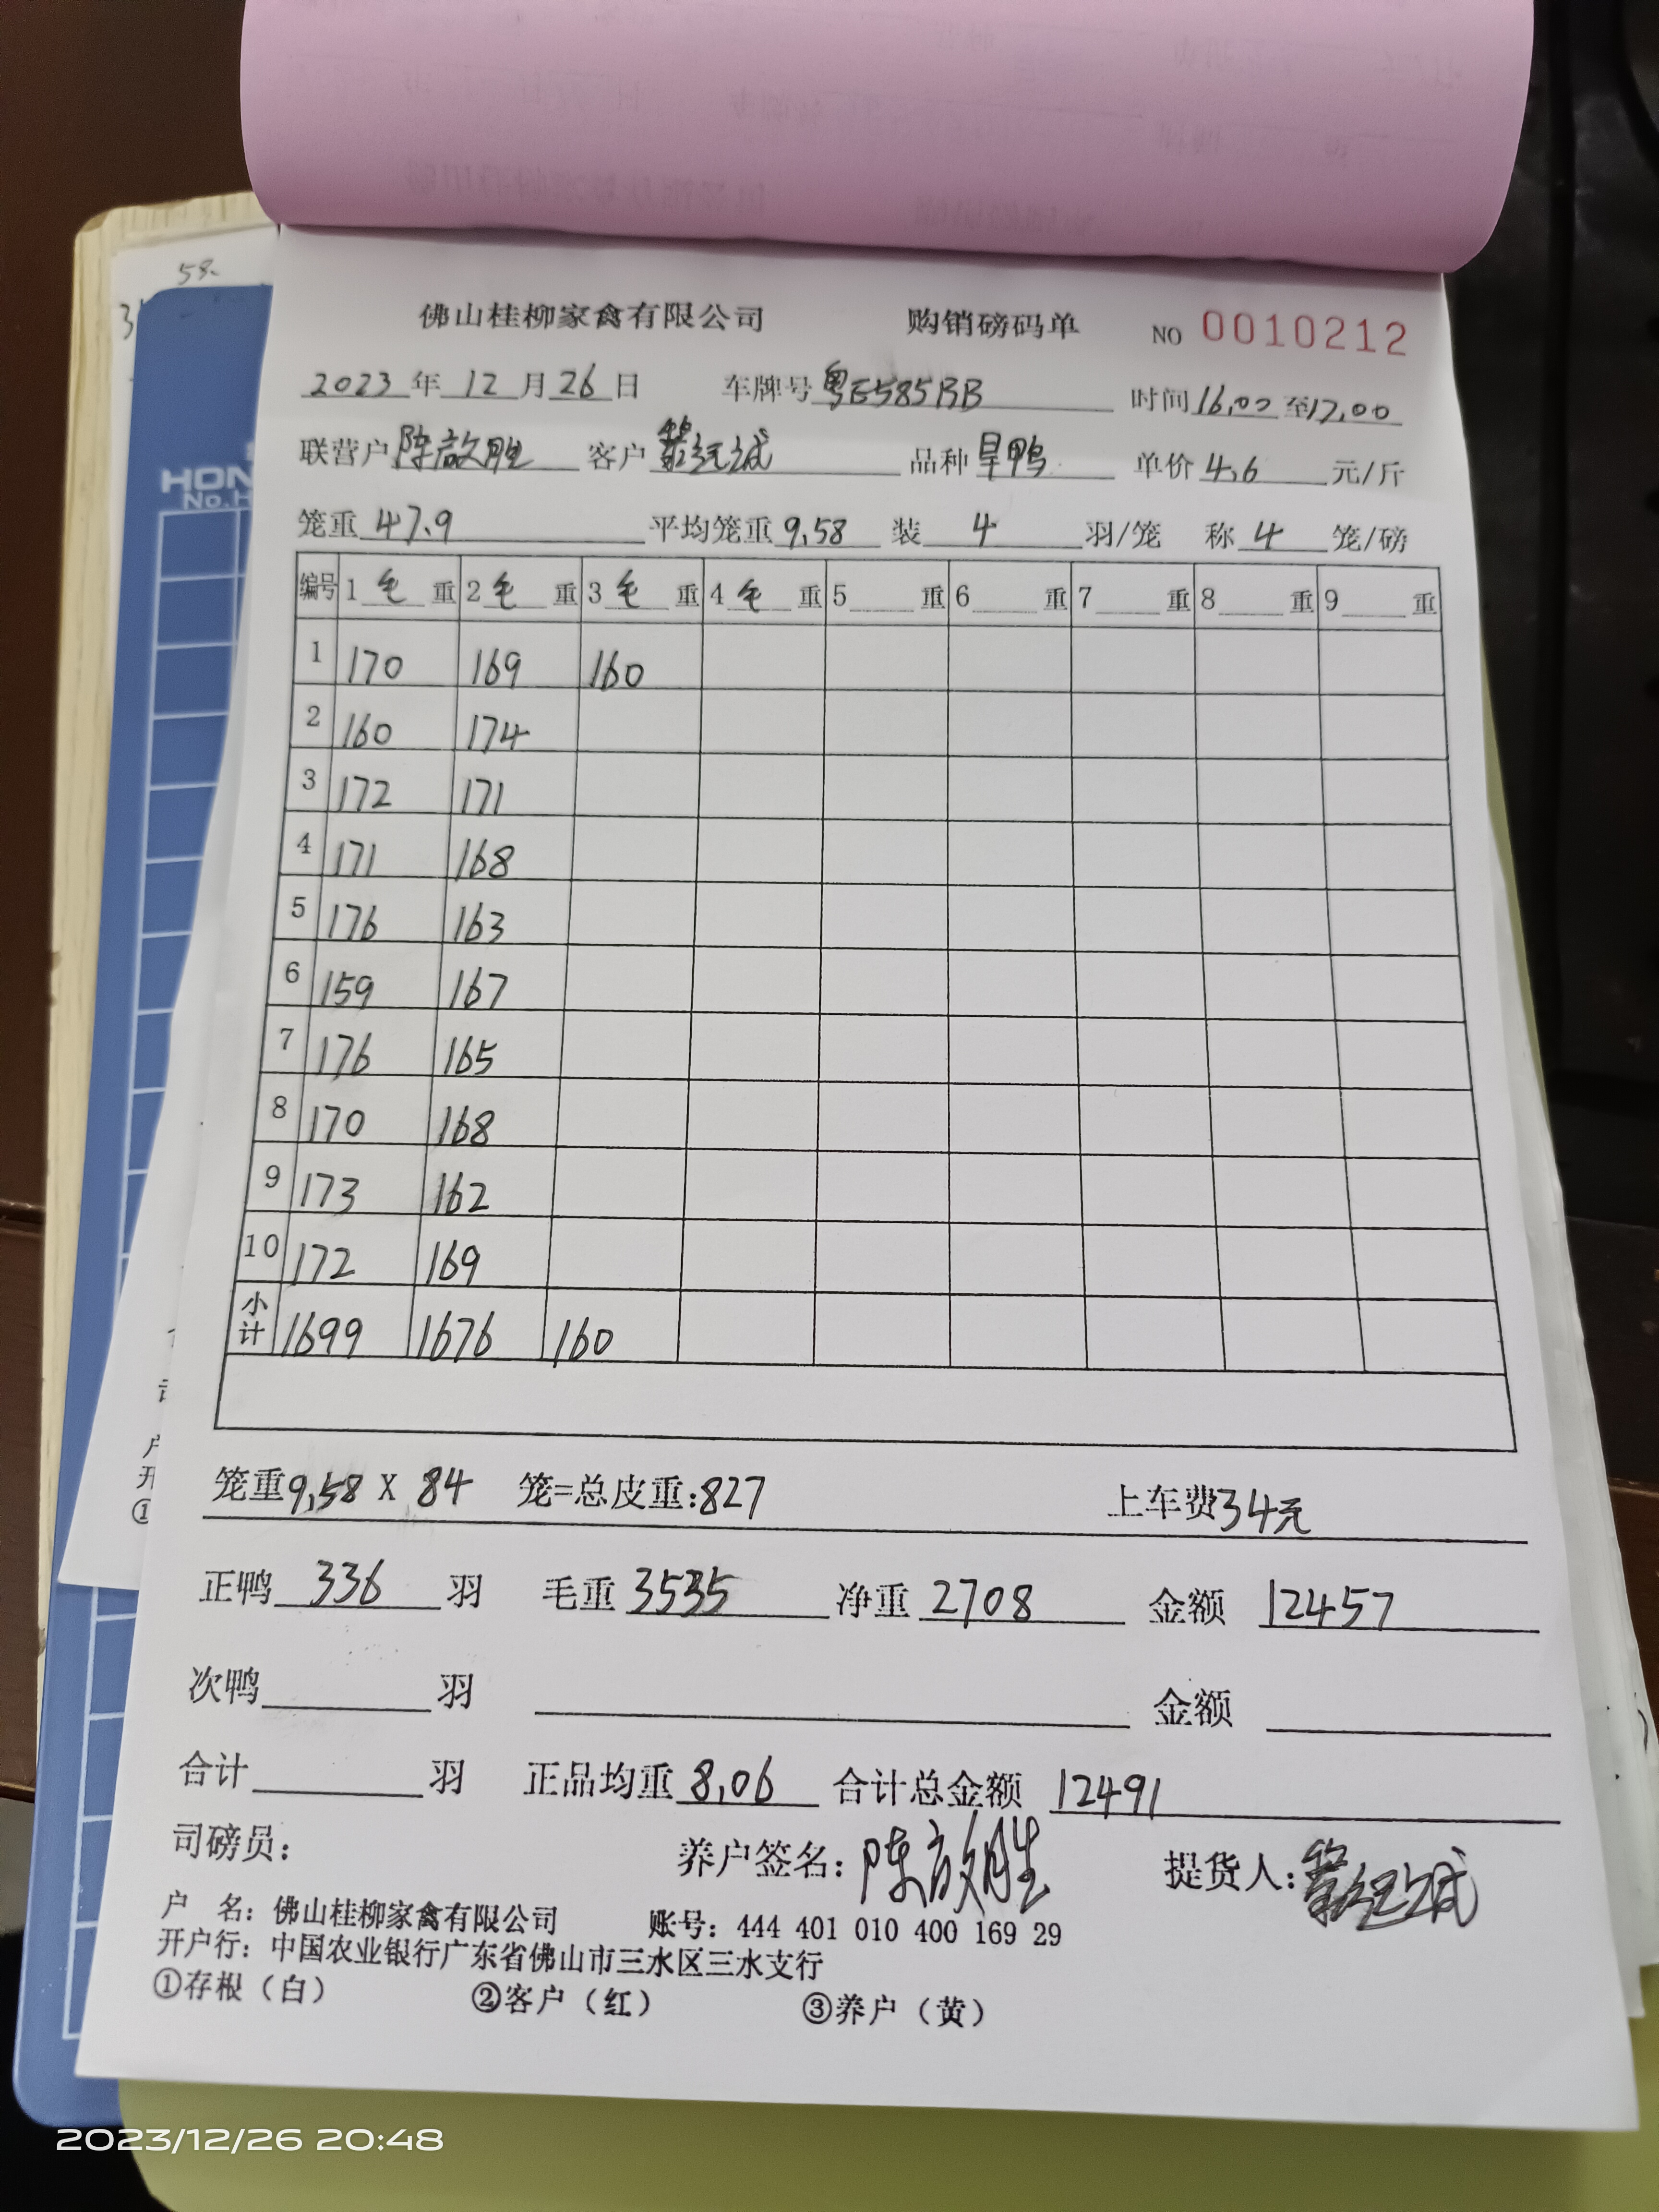 58.
3
HON
No.H
佛山桂柳家禽有限公司 购销磅码单 NO 0010212
2023年12月26日 车牌号粤E585BB 时间16,00至17,00
联营户陈敨胜 客户 品种旱鸭 单价4.6元/斤
笼重47.9 平均笼重9.58 装4羽/笼 称4笼/磅
编号 1毛重 2毛重 3毛重 4毛重 5重 6重 7重 8重 9重
1 170 169 160
2 160 174
3 172 171
4 171 168
5 176 163
6 159 167
7 176 165
8 170 168
9 173 162
10 172 169
小计 1699 1676 160
笼重9.58 X 84 笼=总皮重:827 上车费34元
正鸭336羽 毛重3535 净重2708 金额12457
次鸭羽 金额
合计羽 正品均重8.06 合计总金额12491
司磅员: 养户签名:陈敨胜 提货人:
户 名:佛山桂柳家禽有限公司 账号:444 401 010 400 169 29
开户行:中国农业银行广东省佛山市三水区三水支行
①存根(白) ②客户(红) ③养户(黄)
2023/12/26 20:48